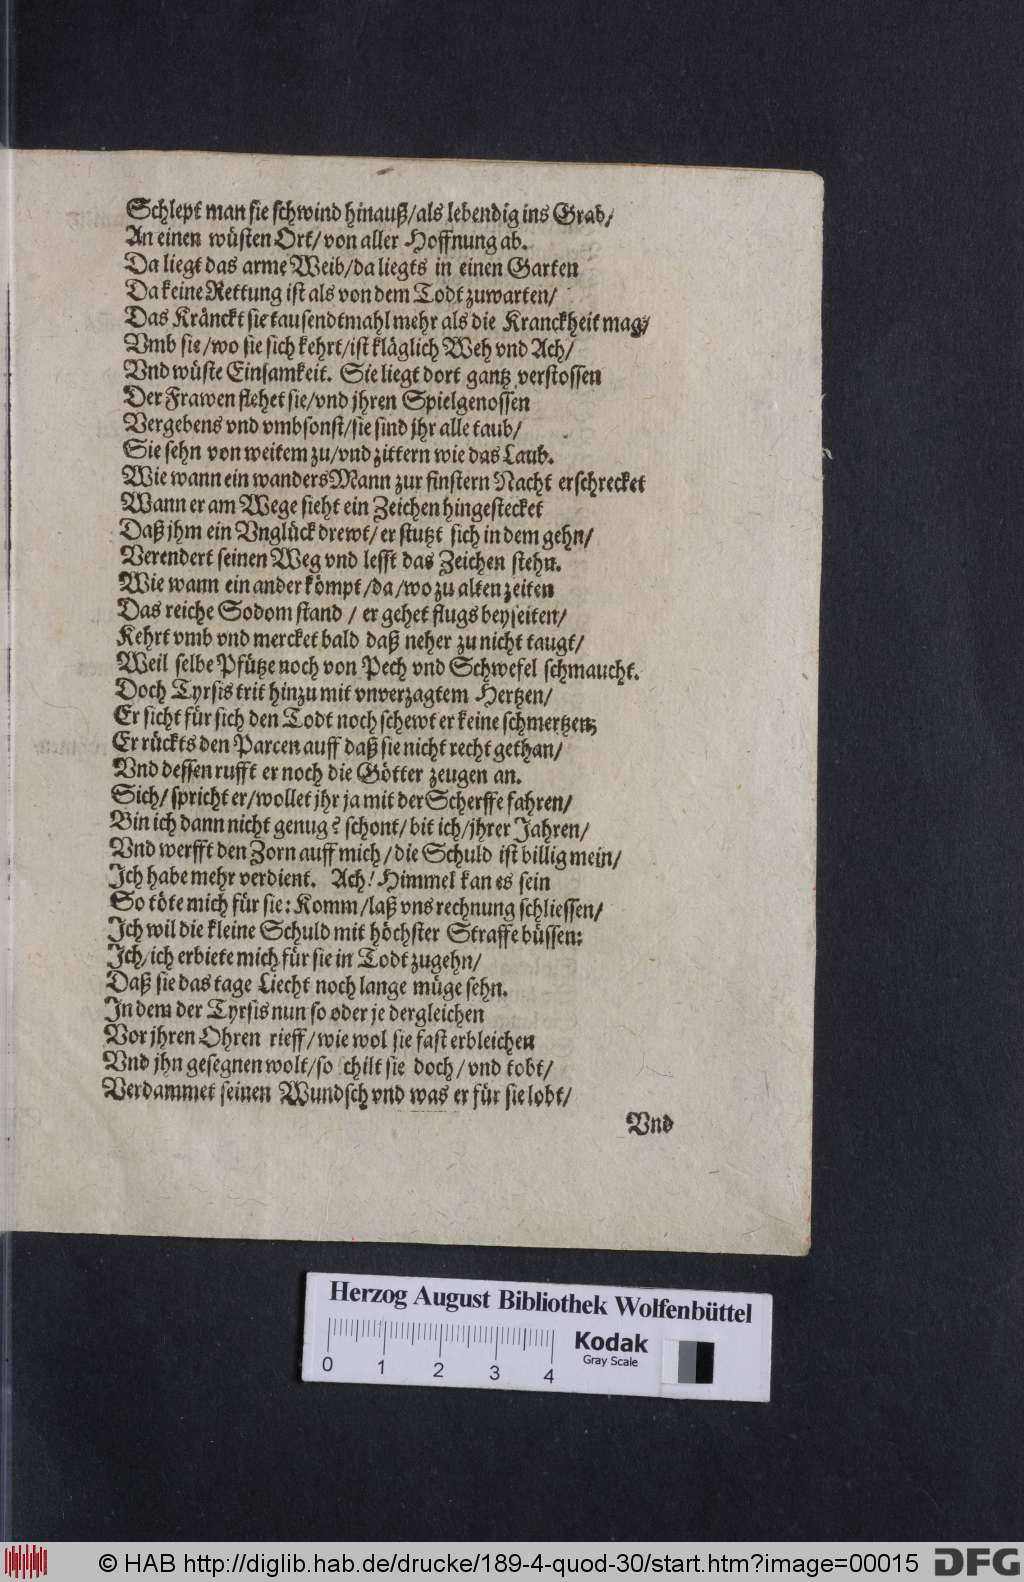 Schlept man sie schwind hinauß/als lebendig ins Grab/
An einen wüsten Ort/ von aller Hoffnung ab.
Da liegt das arme Weib/da liegts in einen Garten
Da keine Rettung ist als von dem Todt zuwarten/
Das Kränckt sie tausendtmahl mehr als die Kranckheit mag/
Vmb sie/wo sie sich kehrt/ist kläglich Weh vnd Ach/
Vnd wüste Einsamkeit. Sie liegt dort gantz verstossen
Der Frawen flehet sie/vnd jhren Spielgenossen
Vergebens vnd vmbsonst/sie sind jhr alle taub/
Sie sehn von weitem zu/vnd zittern wie das Laub.
Wie wann ein wanders Mann zur finstern Nacht erschrecket
Wann er am Wege sieht ein Zeichen hingestecket
Daß jhm ein Vnglück drewt/er stutzt sich in dem gehn/
Verendert seinen Weg vnd lesst das Zeichen stehn.
Wie wann ein ander kömpt/da/wo zu alten zeiten
Das reiche Sodom stand / er gehet flugs beyseiten/
Kehrt vmb vnd mercket bald daß neher zu nicht taugt/
Weil selbe Pfütze noch von Pech vnd Schwefel schmaucht.
Doch Tyrsis trit hinzu mit vnverzagtem Hertzen/
Er sicht für sich den Todt noch schewt er keine schmertzen;
Er rückts den Parcen auff daß sie nicht recht gethan/
Vnd dessen rufft er noch die Götter zeugen an.
Sich/ spricht er/wollet jhr ja mit der Scherffe fahren/
Bin ich dann nicht genug? schont/ bit ich/jhrer Jahren/
Vnd werfft den Zorn auff mich/die Schuld ist billig mein/
Ich habe mehr verdient. Ach! Himmel kan es sein
So töte mich für sie: Komm/laß vns rechnung schliessen/
Ich wil die kleine Schuld mit höchster Straffe büssen:
Ich/ich erbiete mich für sie in Todt zugehn/
Daß sie das tage Liecht noch lange müge sehn.
In dem der Tyrsis nun so oder je dergleichen
Vor jhren Ohren rieff/wie wol sie fast erbleichen
Vnd jhn gesegnen wolt/so schilt sie doch/vnd tobt/
Verdammet seinen Wundsch vnd was er für sie lobt/
Vnd
Herzog August Bibliothek Wolfenbüttel
Kodak
Gray Scale
0 1 2 3 4
© HAB http://diglib.hab.de/drucke/189-4-quod-30/start.htm?image=00015
DFG